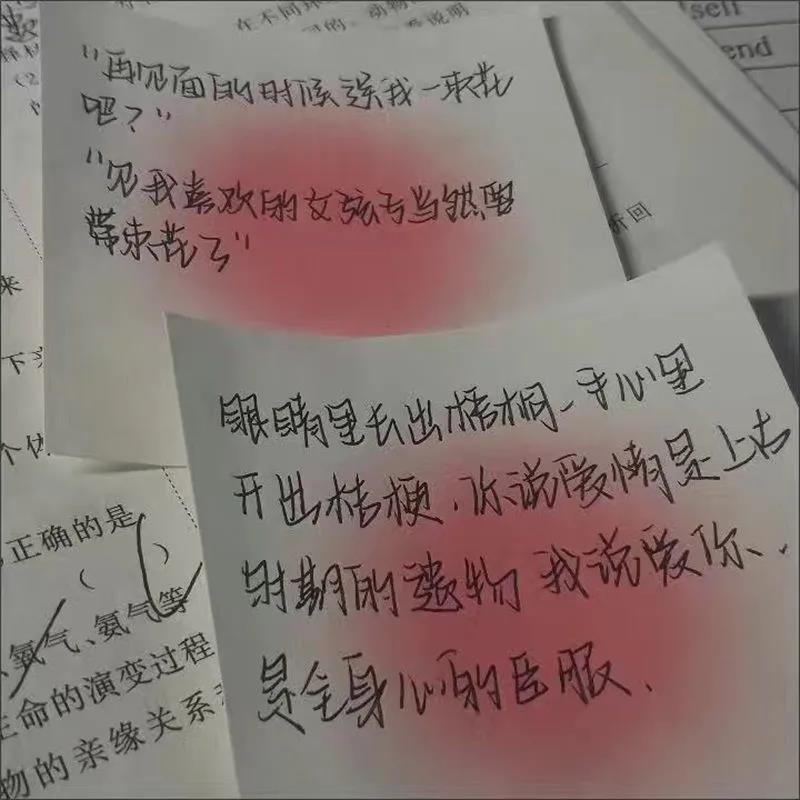 在不同环
self
end
"再见面的时候送我一束花
吧？"
"见我喜欢的女孩子当然要
带束花了"
折回
来
眼睛里长出梧桐、手心里
开出桔梗、你说爱情是上古
时期的遗物 我说爱你、
是全身心的臣服、
正确的是
（ ）
、氧气、氨气等
生命的演变过程
物的亲缘关系